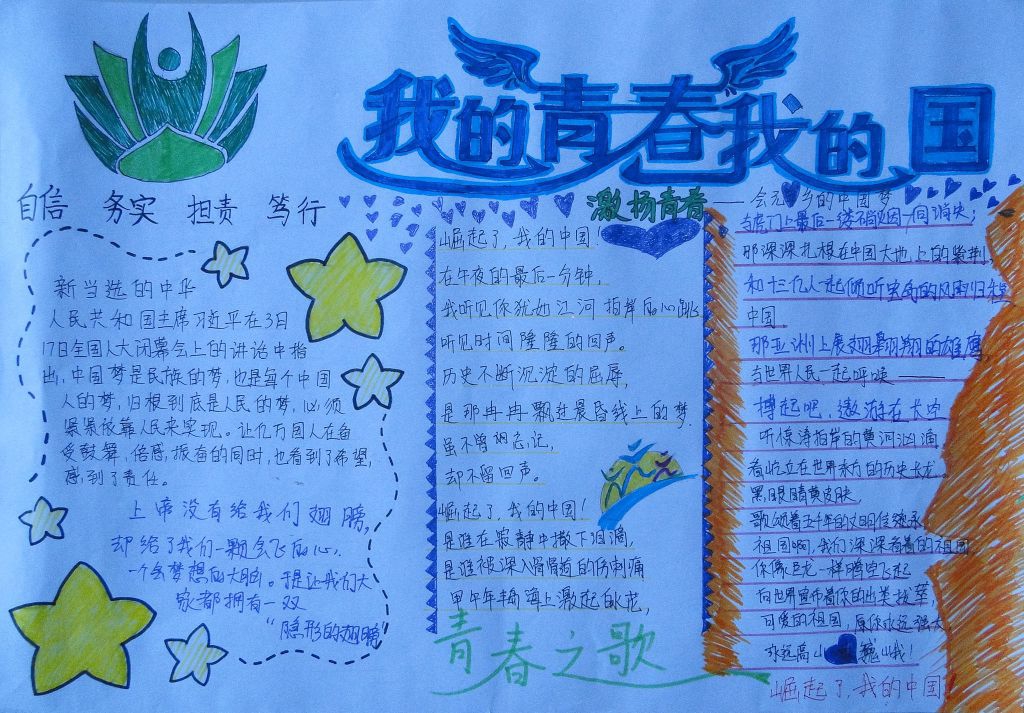 我的青春我的国
自信 务实 担责 笃行
新当选的中华
人民共和国主席习近平在3月
17日全国人大闭幕会上的讲话中指
出,中国梦是民族的梦,也是每个中国
人的梦,归根到底是人民的梦,必须
紧紧依靠人民来实现。让亿万国人在备
受鼓舞、倍感振奋的同时,也看到了希望,
感到了责任。
上帝没有给我们翅膀,
却给了我们一颗会飞的心,
一个会梦想的大脑。于是让我们大
家都拥有一双
“隐形的翅膀
激扬青春
崛起了,我的中国!
在午夜的最后一分钟,
我听见你犹如江河拍岸的心跳
听见时间隆隆的回声。
历史不断沉淀的屈辱,
是那冉冉飘过晨昏线上的梦
虽不曾相忘记,
却不留回声。
崛起了,我的中国!
是谁在寂静中撒下泪滴,
是谁被深入骨髓的伤刺痛
甲午年 海上激起的水花,
青春之歌
的中国梦
那深深扎根在中国大地上的紫荆,
和十三亿人一起倾听 的风雨归程
中国
那亚洲上展翅翱翔的雄鹰
当世界人民一起呼唤——
搏起吧,遨游在太空
听惊涛拍岸的黄河汹涌
看屹立在世界东方的历史长龙
黑眼睛黄皮肤,
歌颂着五千年的文明
祖国啊,我们深深 着的祖国
你像巨龙一样腾空飞起
向世界宣布着你的出类拔萃,
可爱的祖国,愿你永远强大,
永远高山 巍峨!
崛起了,我的中国!